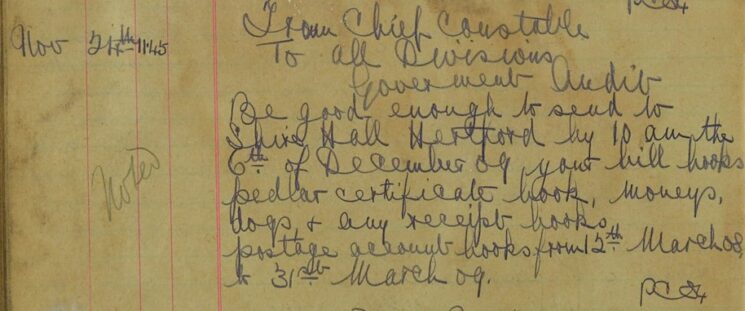 PC 84
From Chief Constable
Nov 24th 1145
To all Divisions
Goverment Audit
Be good enough to send to
Shire Hall Hertford by 10 am the
6th of December 09 your bill books
pedlar certificate book, moneys,
dogs, & any receipt books,
postage account books from 12th March 08,
to 31st March 09.
PC 84
Noted